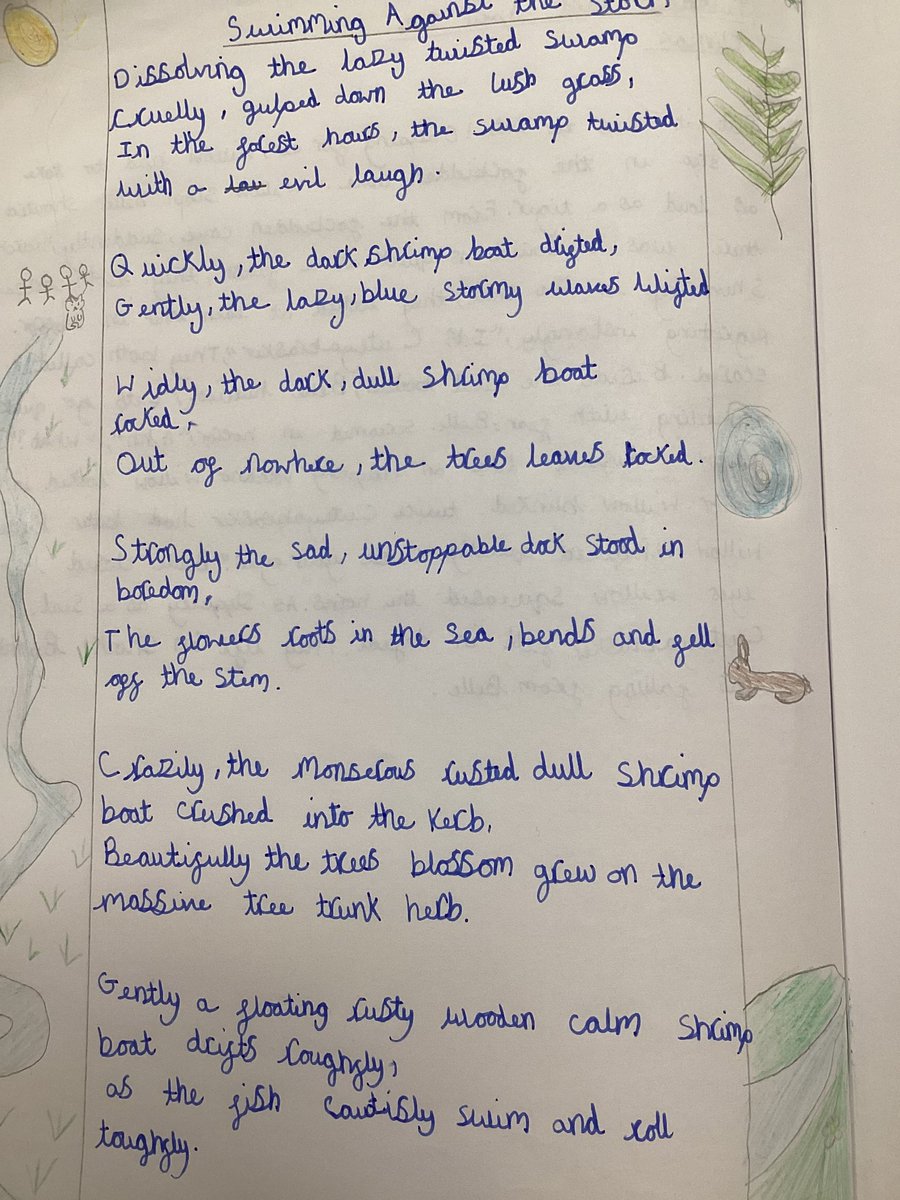 Swimming Against the Storm
Dissolving the lazy twisted swamp
Cruelly, gulped down the lush grass,
In the forest hours, the swamp twisted
with a evil laugh.
Quickly, the dark shrimp boat drifted,
Gently, the lazy, blue stormy waves wifted
Widly, the dark, dull shrimp boat
rocked,
Out of nowhere, the trees leaves rocked.
Strongly the sad, unstoppable dock stood in
boredom,
The flowers roots in the sea, bends and fell
off the stem.
Crazily, the monserous rusted dull shrimp
boat crushed into the kerb,
Beautifully the trees blossom grew on the
massive tree trunk herb.
Gently a floating rusty wooden calm shrimp
boat drifts roughfly,
as the fish cautisly swim and roll
toughfly.